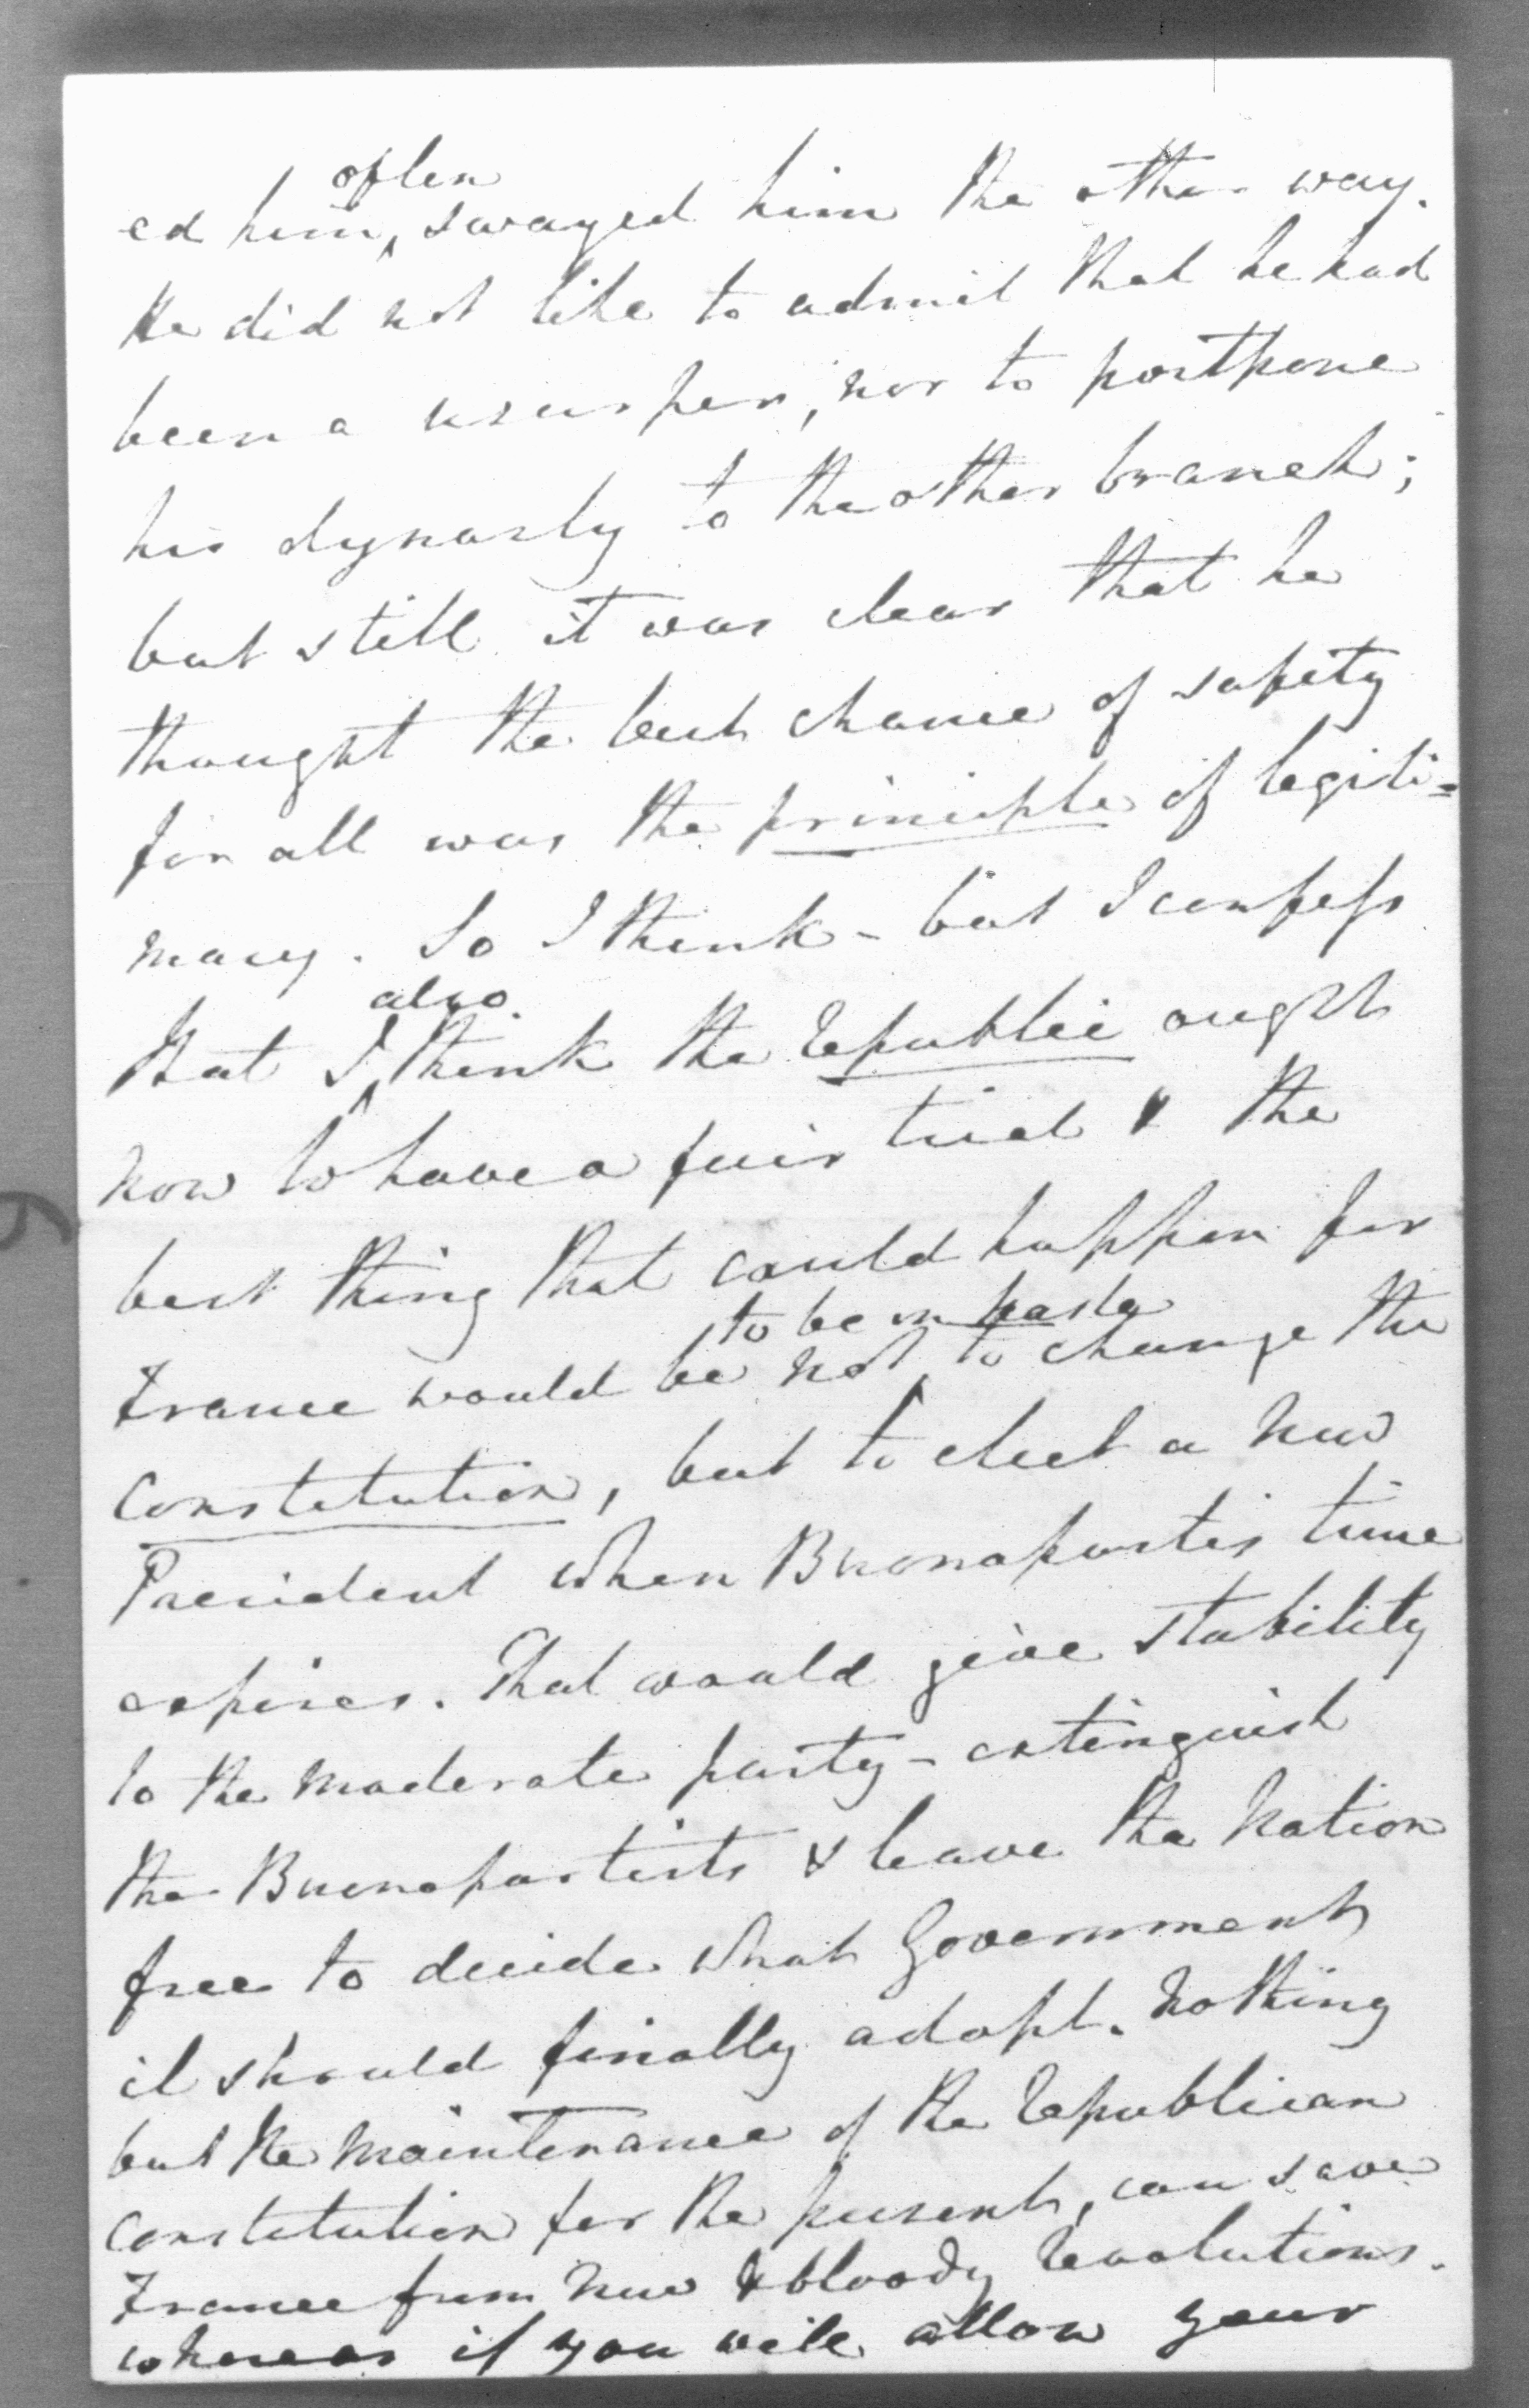 often
ed him, swayed him the other way.
He did not like to admit that he had
been a usurper, nor to postpone
his dynasty to the other branch;
but still it was clear that he
thought the best chance of safety
for all was the principle of legiti=
macy. So I think - but I confess
also
that I think the republic ought
now to have a fair trial & the
best thing that could happen for
to be in haste
France would be not to change the
Constitution, but to elect a new
President when Buonaparte's time
expires. That would give stability
to the moderate party - extinguish
the Buonapartists & leave the Nation
free to decide what Government
it should finally adopt. Nothing
but the maintenance of the republican
Constitution for the present, can save
France from new & bloody revolutions.
whereas if you will allow your